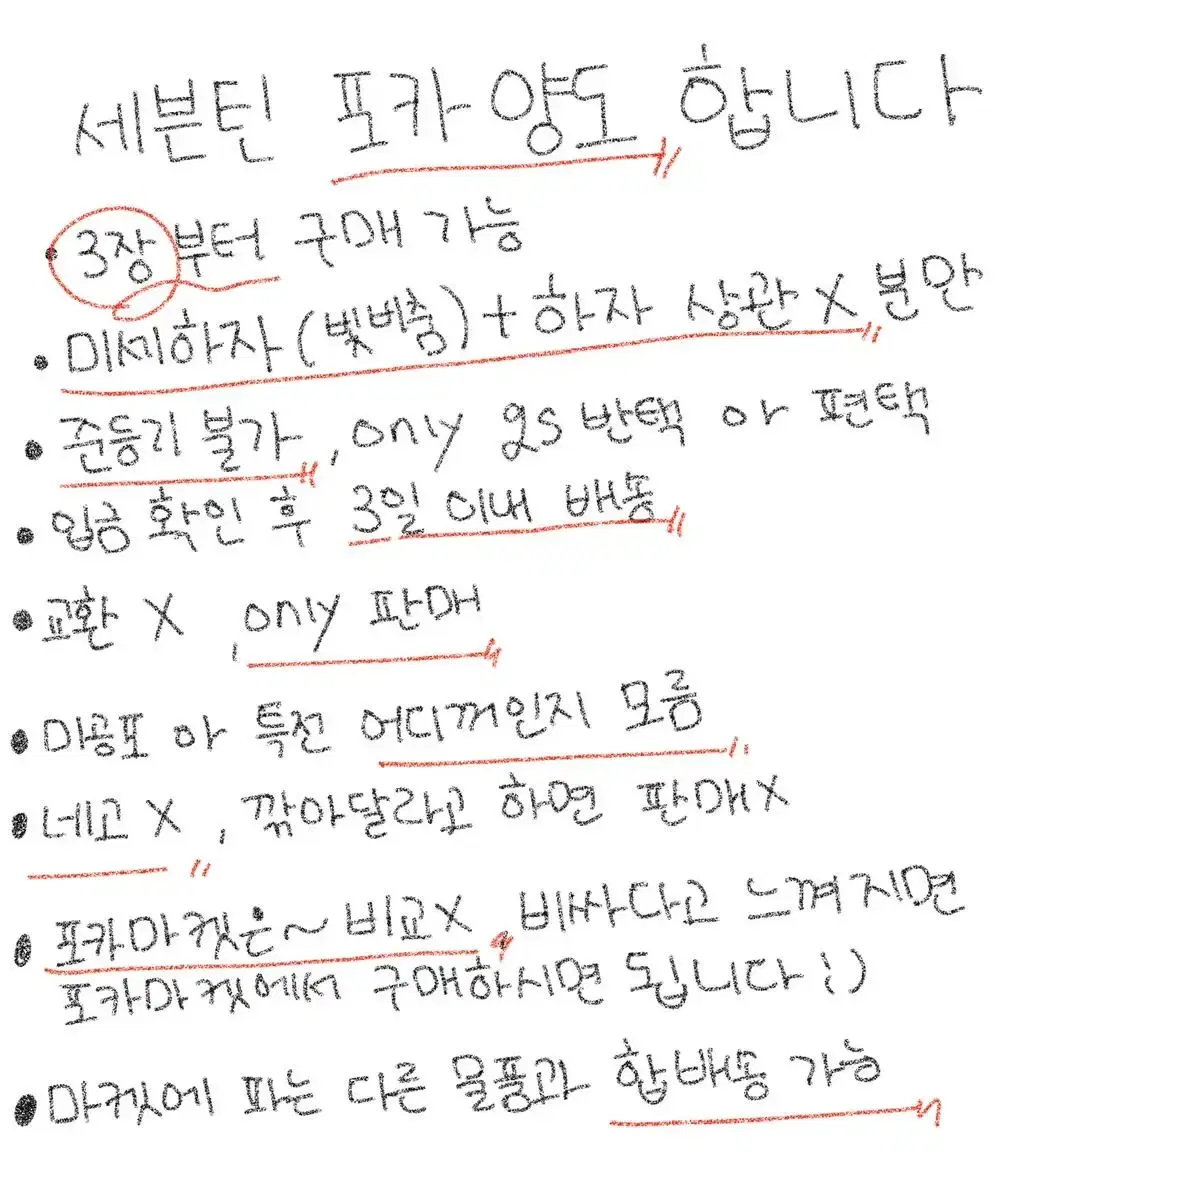 세븐틴 포카 양도 합니다
• 3장부터 구매 가능
• 미세하자(빛비춤)+하자 상관 X 분만
• 준등기 불가, only gs 반택 or 편택
• 입금 확인 후 3일 이내 배송
• 교환 X, only 판매
• 미공포 아 특전 어디꺼인지 모름
• 네고 X, 깎아달라고 하면 판매X
• 포카마켓은~ 비교X, 비싸다고 느껴지면
포카마켓에서 구매하시면 됩니다 :)
• 마켓에 파는 다른 물품과 합배송 가능